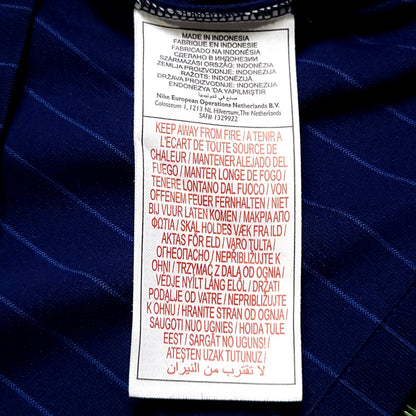 MADE IN INDONESIA
FABRIQUE EN INDONESIE
FABRICADO NA INDONÉSIA
СДЕЛАНО В ИНДОНЕЗИИ
SZÁRMAZÁSI ORSZÁG: INDONÉZIA
ZEMLJA PROIZVODNJE: INDONEZIJA
RAŽOTS: INDONEZIJĀ
DRŽAVA PROIZVODNJE: INDONEZIJA
ENDONEZYA'DA YAPILMIŞTIR
صنع في اندونيسيا
Nike European Operations Netherlands B.V.
Colosseum 1, 1213 NL Hilversum, The Netherlands
SAFM 1329922
KEEP AWAY FROM FIRE / A TENIR A
L'ECART DE TOUTE SOURCE DE
CHALEUR / MANTENER ALEJADO DEL
FUEGO / MANTER LONGE DE FOGO /
TENERE LONTANO DAL FUOCO / VON
OFFENEM FEUER FERNHALTEN / NIET
BIJ VUUR LATEN KOMEN / ΜΑΚΡΙΑ ΑΠΟ
ΦΩΤΙΑ / SKAL HOLDES VÆK FRA ILD /
AKTAS FÖR ELD / VARO TULTA /
ОГНЕОПАСНО / NEPŘIBLIŽUJTE K
OHNI / TRZYMAĆ Z DALA OD OGNIA /
VÉDJE NYÍLT LÁNG ELŐL / DRŽATI
PODALJE OD VATRE / NEPRIBLIŽUJTE
K OHŇU / HRANITE STRAN OD OGNJA /
SAUGOTI NUO UGNIES / HOIDA TULE
EEST / SARGĀT NO UGUNS /
ATEŞTEN UZAK TUTUNUZ /
لا تقترب من النيران